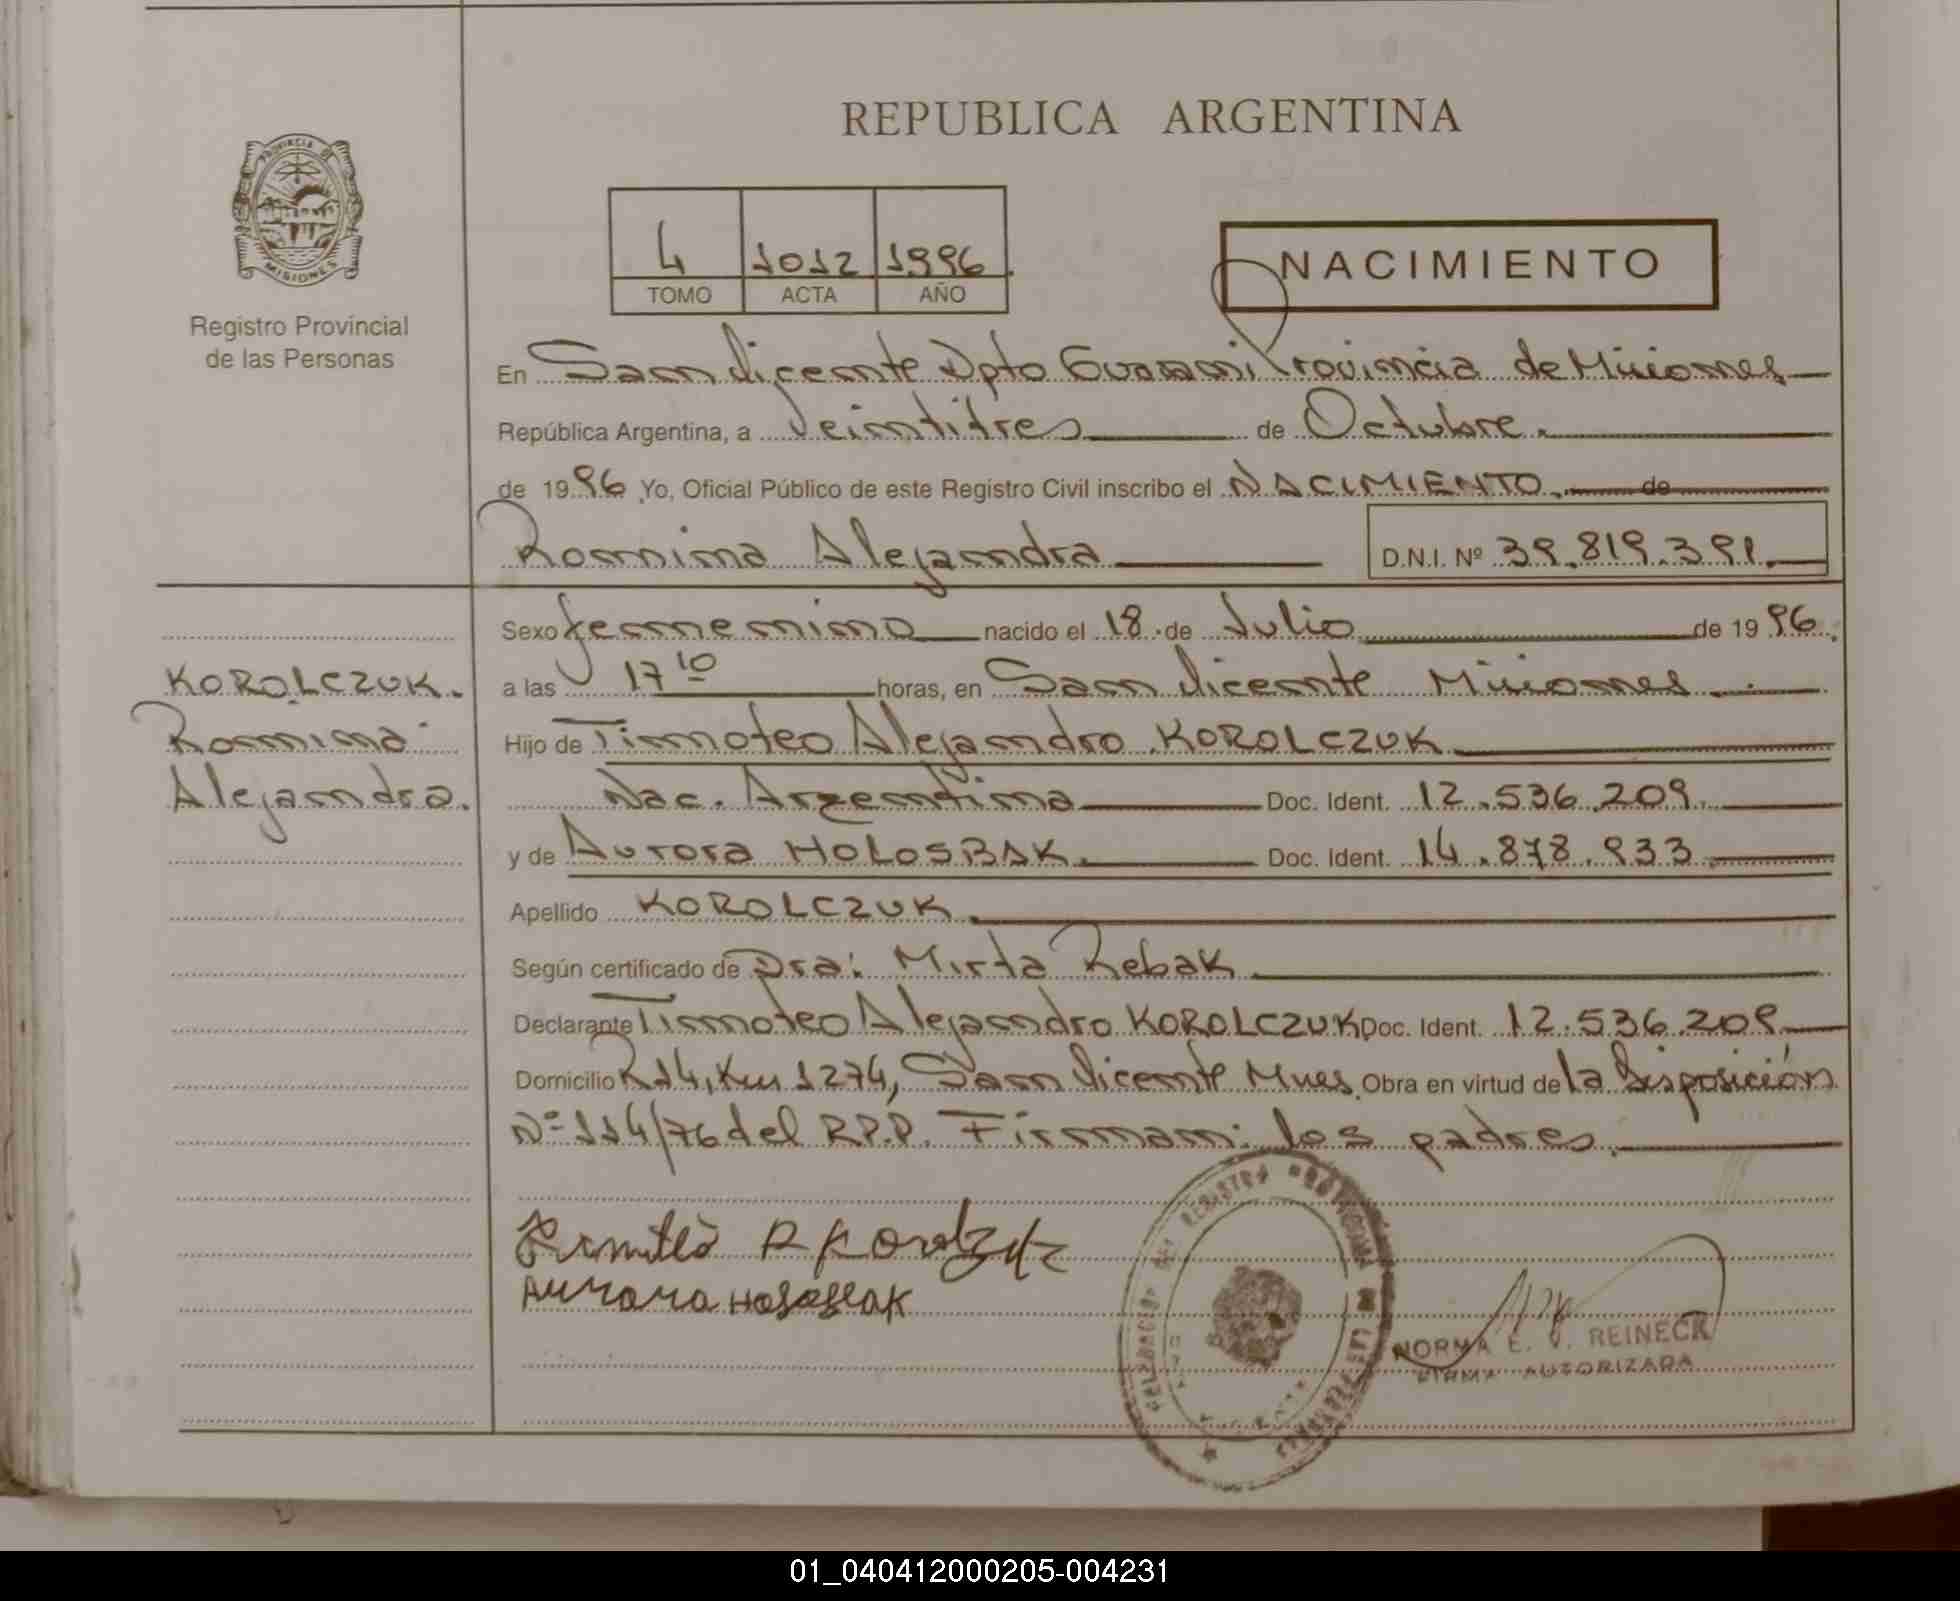 REPUBLICA ARGENTINA
PROVINCIA DE
MISIONES
Registro Provincial
de las Personas
4 1012 1996
TOMO ACTA AÑO
NACIMIENTO
En San Vicente Dpto Guarani Provincia de Misiones
República Argentina, a Veintitres de Octubre.
de 1996 Yo, Oficial Público de este Registro Civil inscribo el NACIMIENTO. de
Romina Alejandra D.N.I. Nº 39.819.391.
Sexo femenino nacido el 18 de Julio de 1996.
a las 17 10 horas, en San Vicente Misiones
Hijo de Timoteo Alejandro KOROLCZUK
Nac. Argentina Doc. Ident. 12.536.209.
y de Aurora HOLOSBAK. Doc. Ident. 14.878.933
Apellido KOROLCZUK.
Según certificado de Dra: Mirta Rebak
Declarante Timoteo Alejandro KOROLCZUK Doc. Ident. 12.536.209
Domicilio R14, Km 1274, San Vicente Mnes. Obra en virtud de la Disposición
Nº 114/76 del R.P.P. Firman: los padres.
KOROLCZUK.
Romina
Alejandra.
Aurora HOLOSBAK
REGISTRO PROVINCIAL DE LAS PERSONAS
NORMA E. V. REINECK
FIRMA AUTORIZADA
01_040412000205-004231